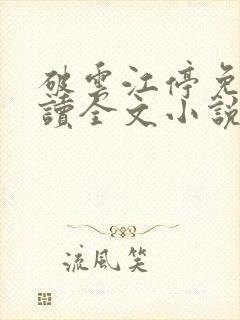 破雲江停免
讀全文小說
流風笑